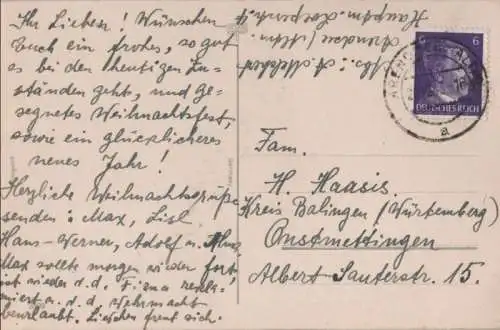 Ihr Lieben! Wünschen
Euch ein frohes, so gut
es bei den heutigen Zu-
ständen geht, und ge-
segnetes Weihnachtsfest,
sowie ein glücklicheres
neues Jahr!
Herzliche Weihnachtsgrüße
senden: Max, Lisl
Hans-Werner, Adolf u.
Max sollte morgen wieder fort
ist wieder v. d. Firma rekla-
miert u. v. d. Wehrmacht
beurlaubt. Lieschen freut sich.
Abs.: A. Melchert
Arendsee /Altm.
Hauptm.
6 6
DEUTSCHES REICH
a
Fam.
H. Haasis
Kreis Balingen (Württemberg)
Onstmettingen
Albert Sauterstr. 15.